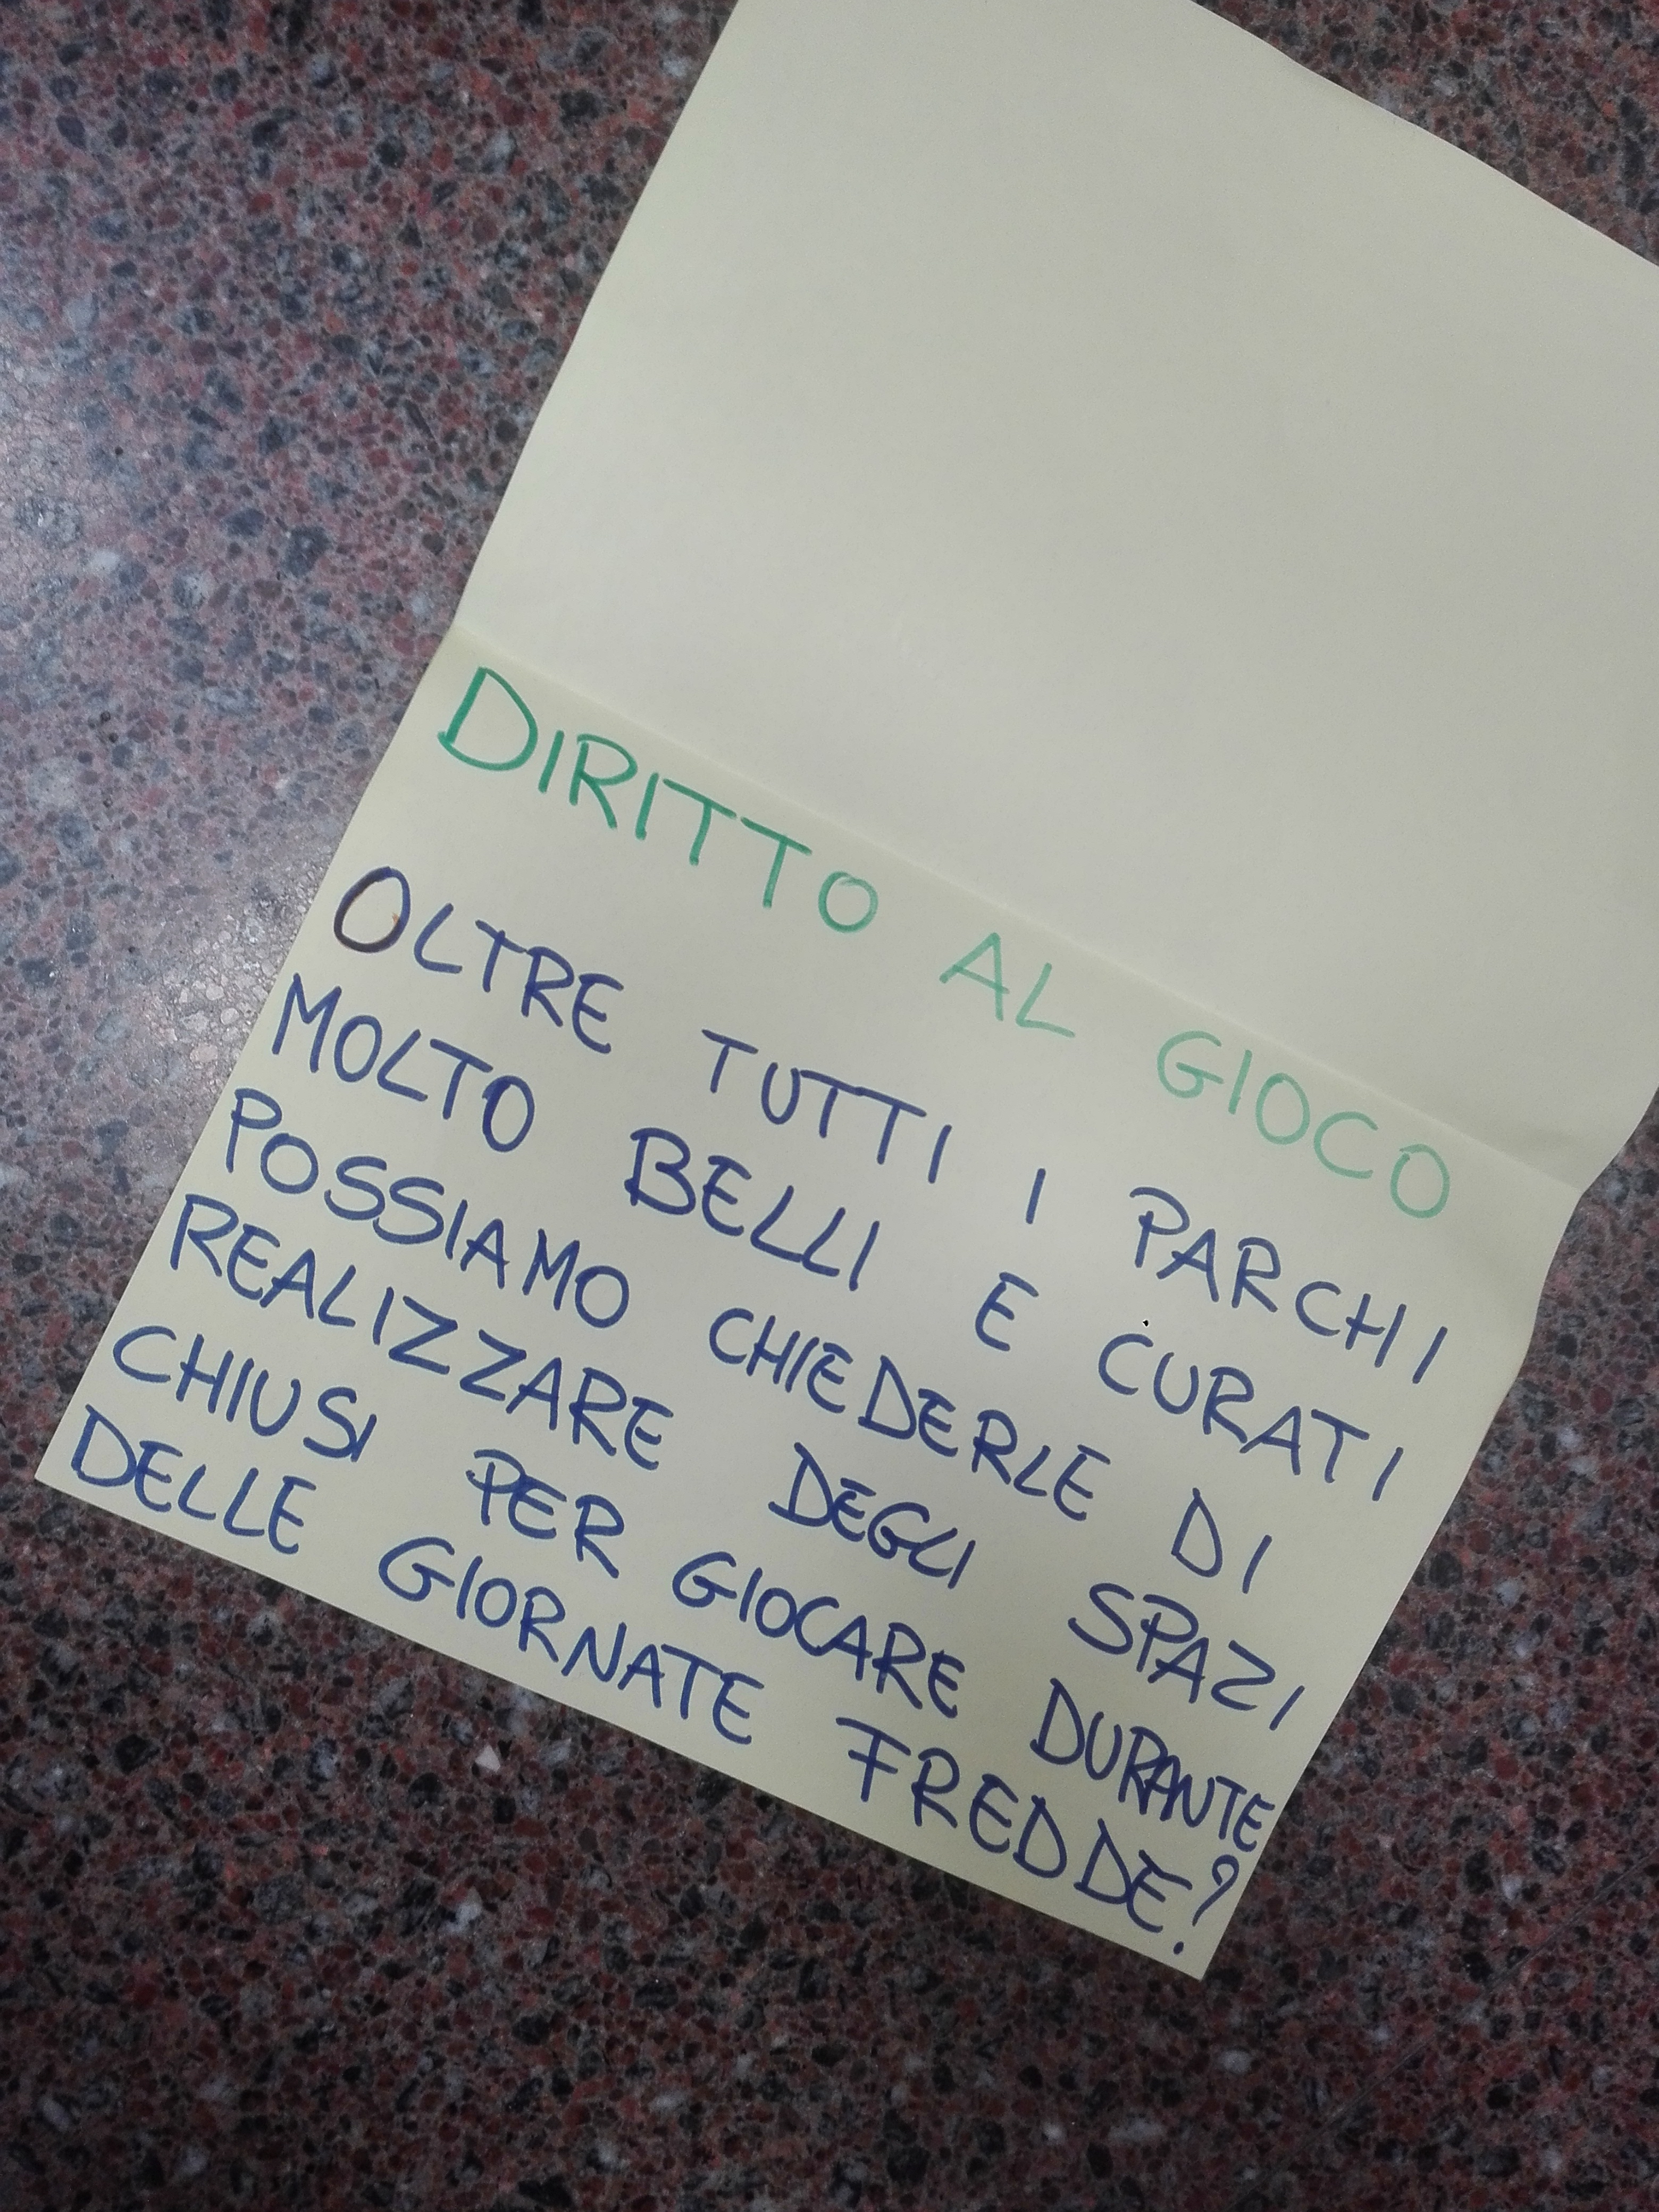 DIRITTO AL GIOCO
OLTRE TUTTI I PARCHI
MOLTO BELLI E CURATI
POSSIAMO CHIEDERLE DI
REALIZZARE DEGLI SPAZI
CHIUSI PER GIOCARE DURANTE
DELLE GIORNATE FREDDE?